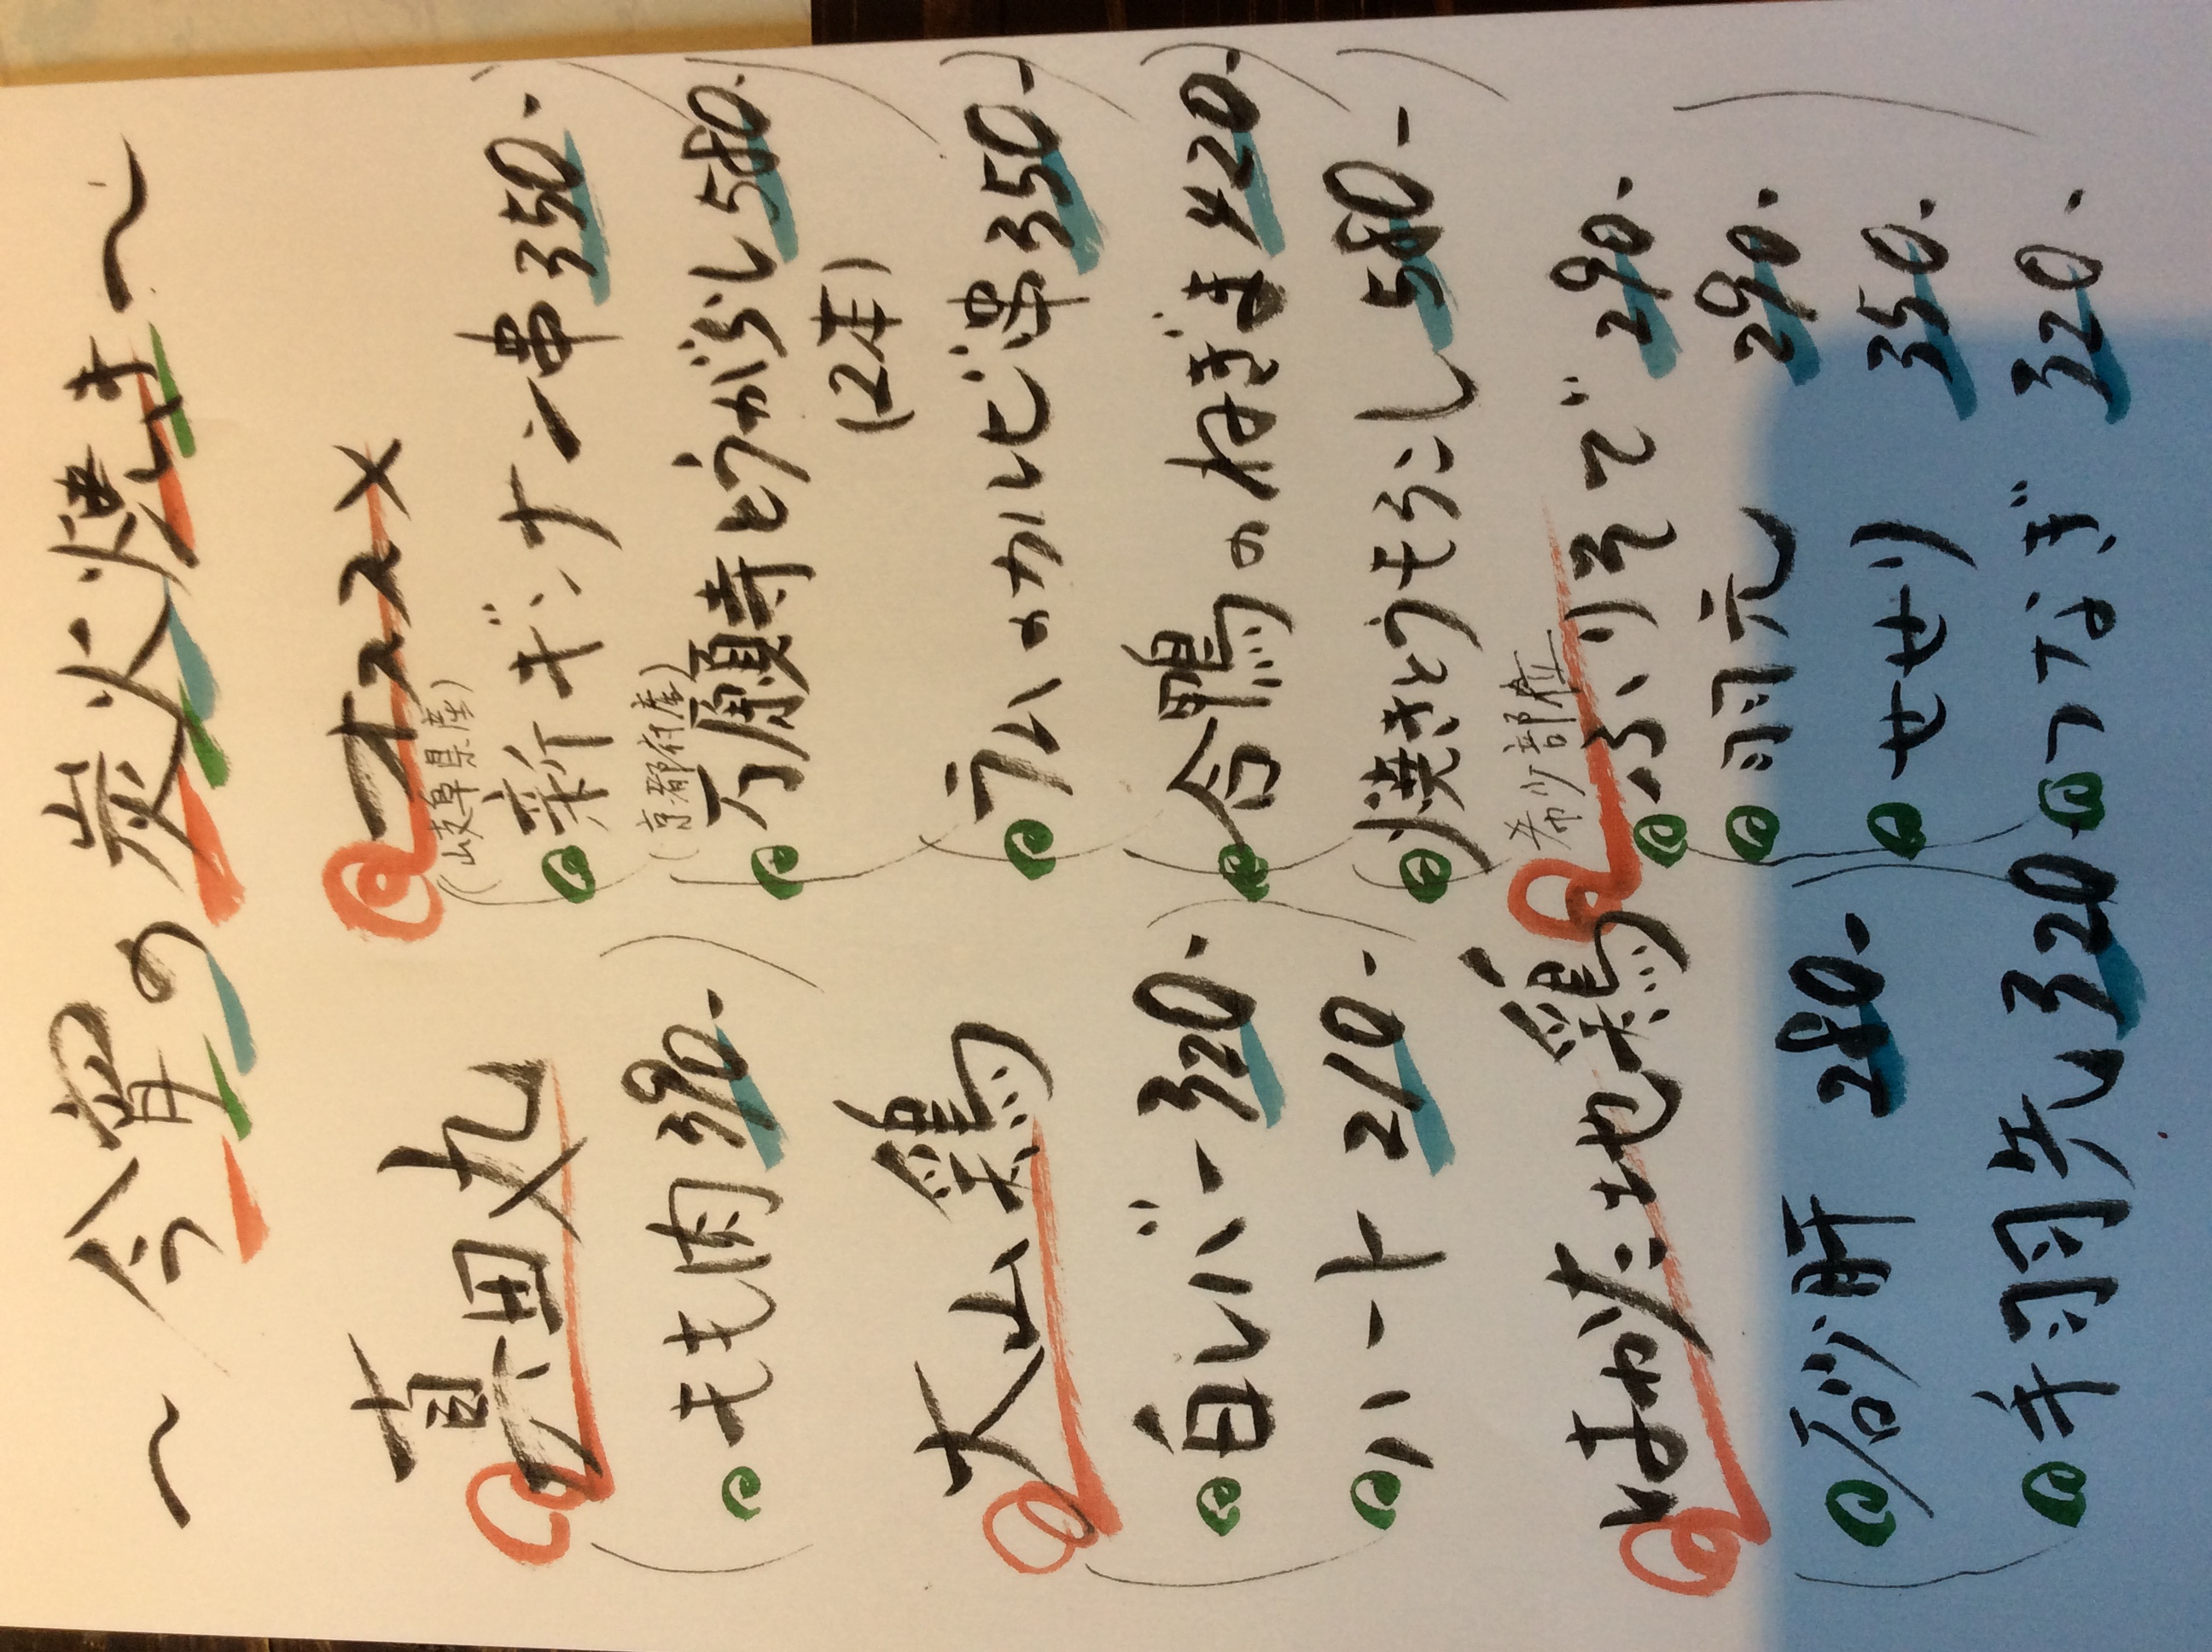 〜今宵の炭火焼き〜
真田丸
もも肉 390-
大山鶏
白レバー 320-
ハート 210-
はかた地鶏
砂肝 280-
手羽先 320
オススメ
(岐阜県産)
新ギンナン串 350-
(京都府産)
万願寺とうがらし 580-
(2本)
ラムのカルビ串 350-
合鴨のねぎま 420-
焼きとうもろこし 580-
希少部位
ふりそで 290-
羽元 290-
せせり 350-
つなぎ 320-